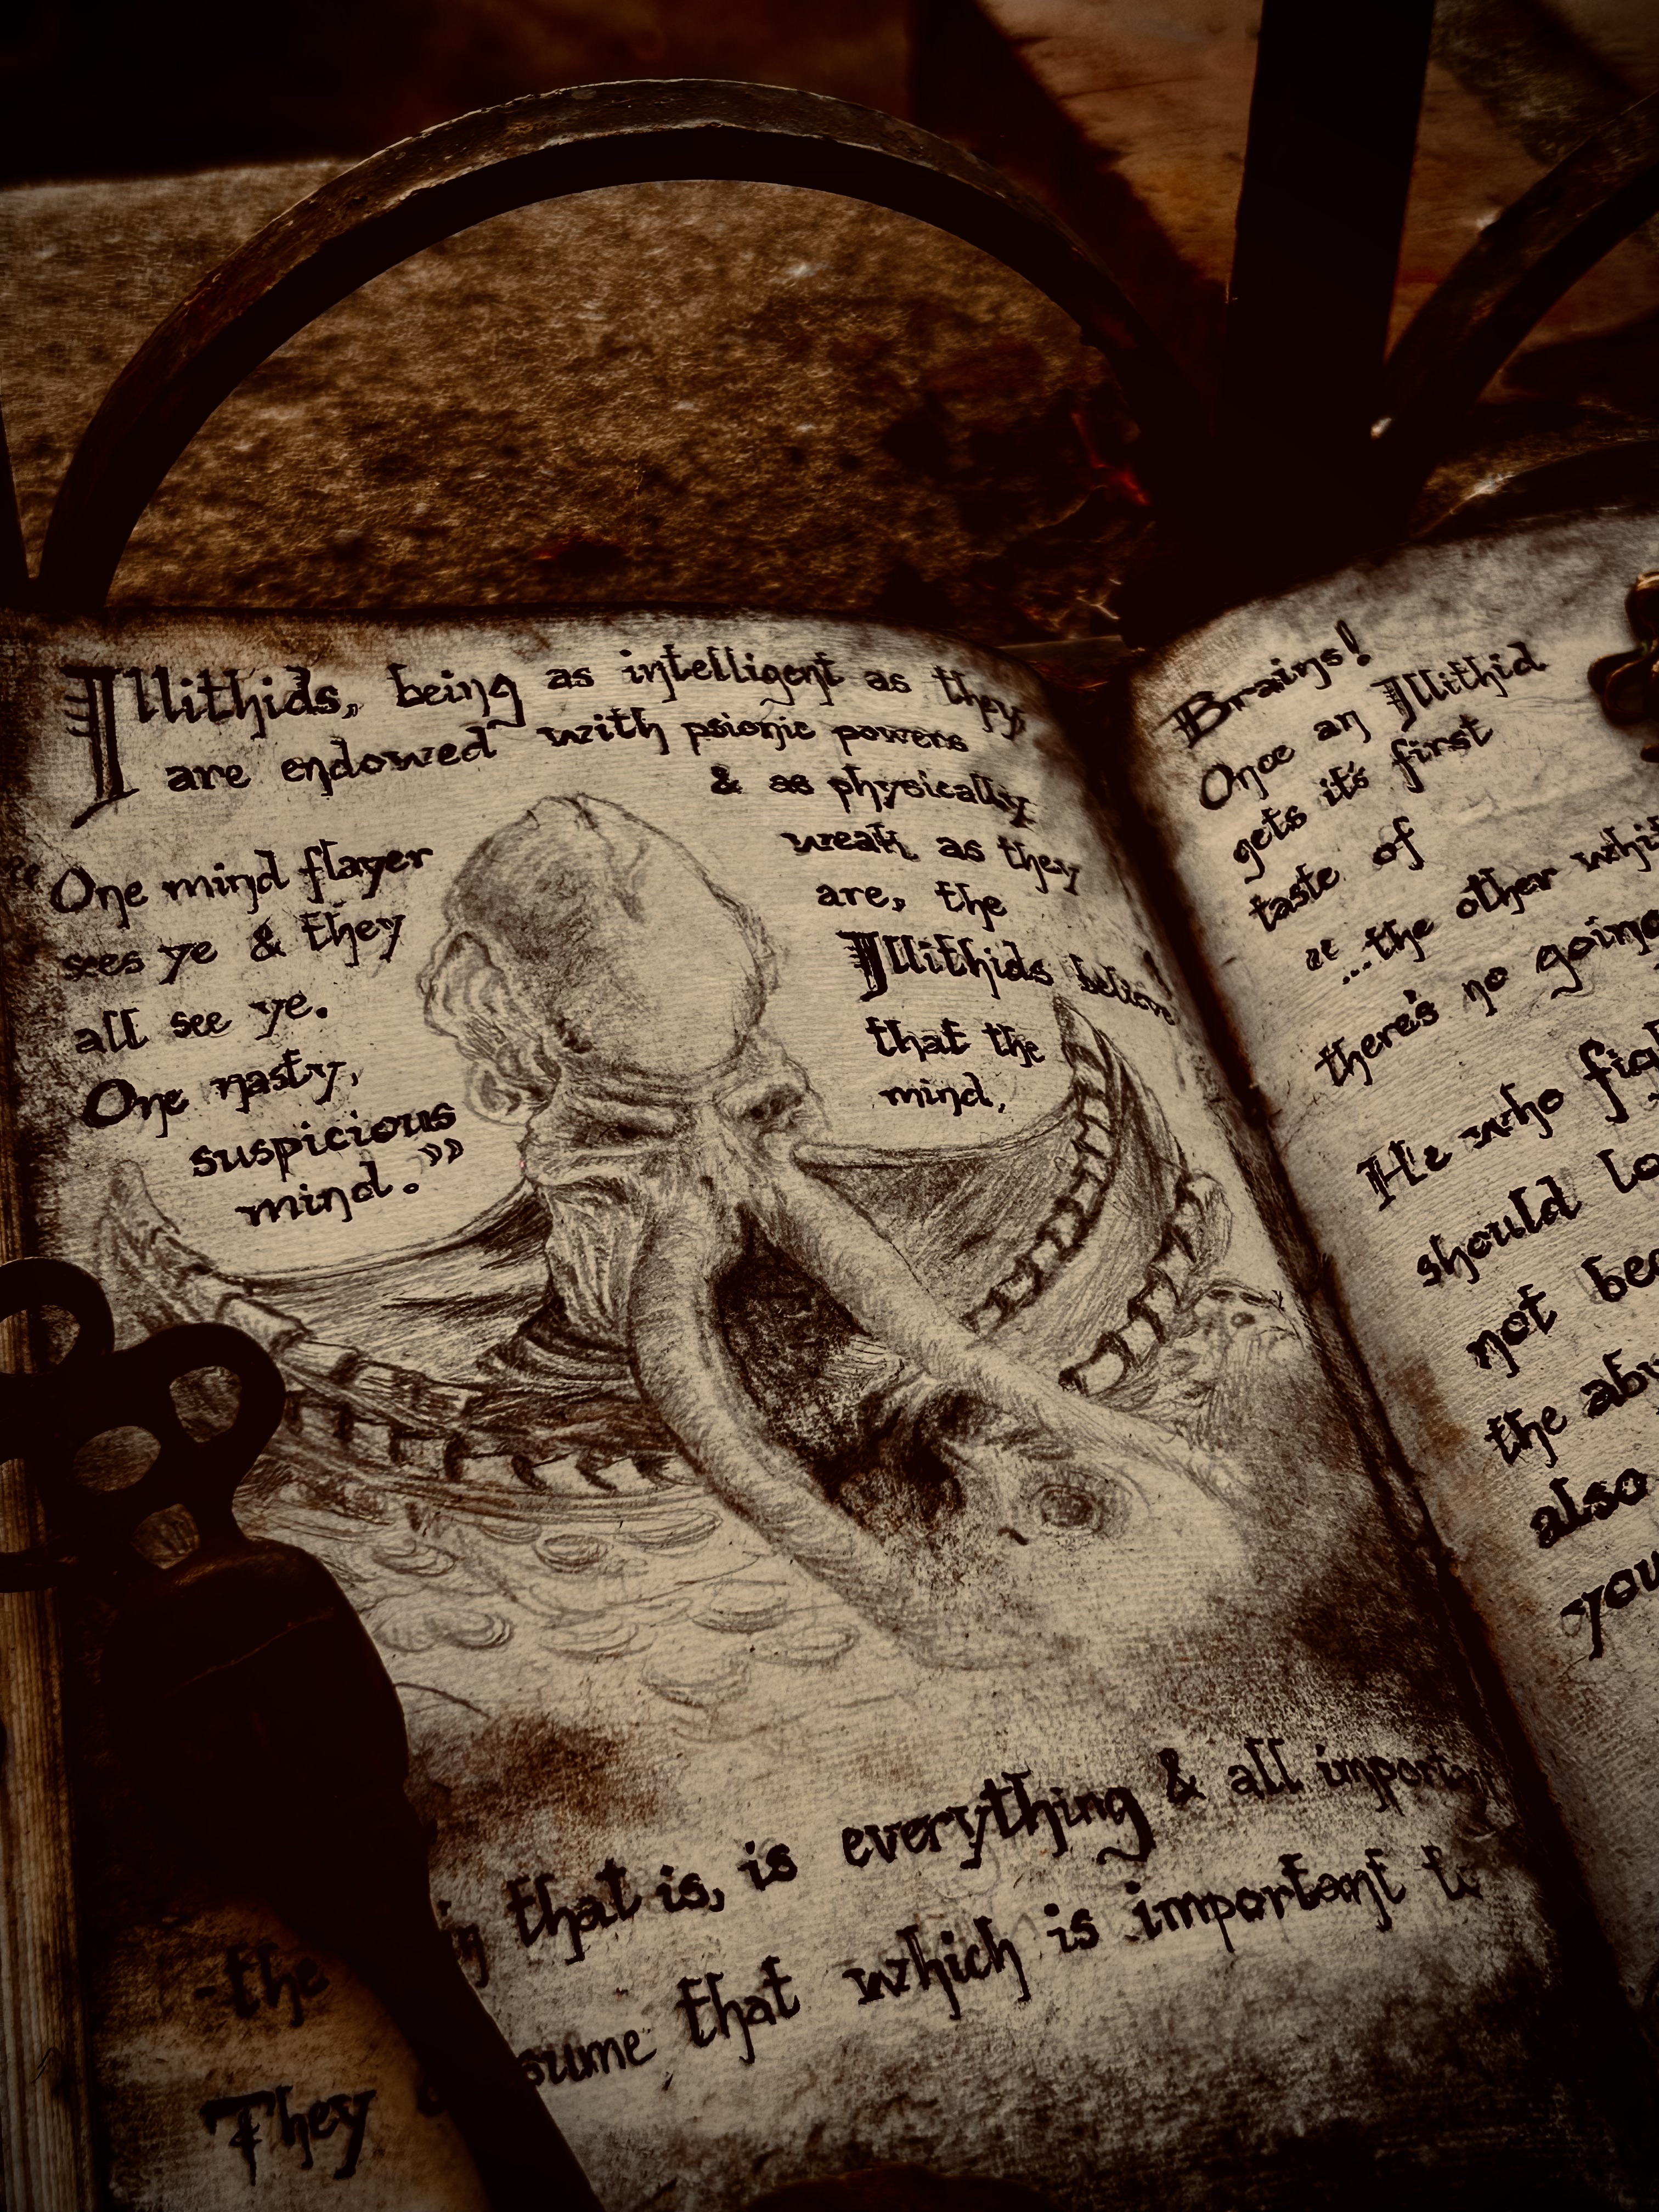 Illithids, being as intelligent as they
are endowed with psionic powers
& as physically
weak as they
are, the
Illithids believe
that the
mind,
"One mind flayer
sees ye & they
all see ye.
One nasty,
suspicious
mind."
the in that is, is everything & all important
They sume that which is important to
Brains!
Once an Illithid
gets it's first
taste of
"...the other whit
there's no going
He who fig
should lo
not bec
the aby
also
you